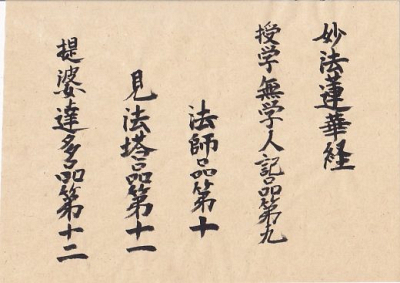 妙法蓮華経
授学無学人記品第九
法師品第十
見法塔品第十一
提婆達多品第十二